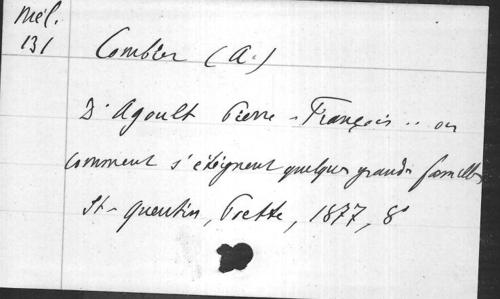 Mél.
131
Combier (A.)
D'Agoult Pierre-François .. ou
comment s'éteignent quelques grandes familles
St-Quentin, Poette, 1877, 8°